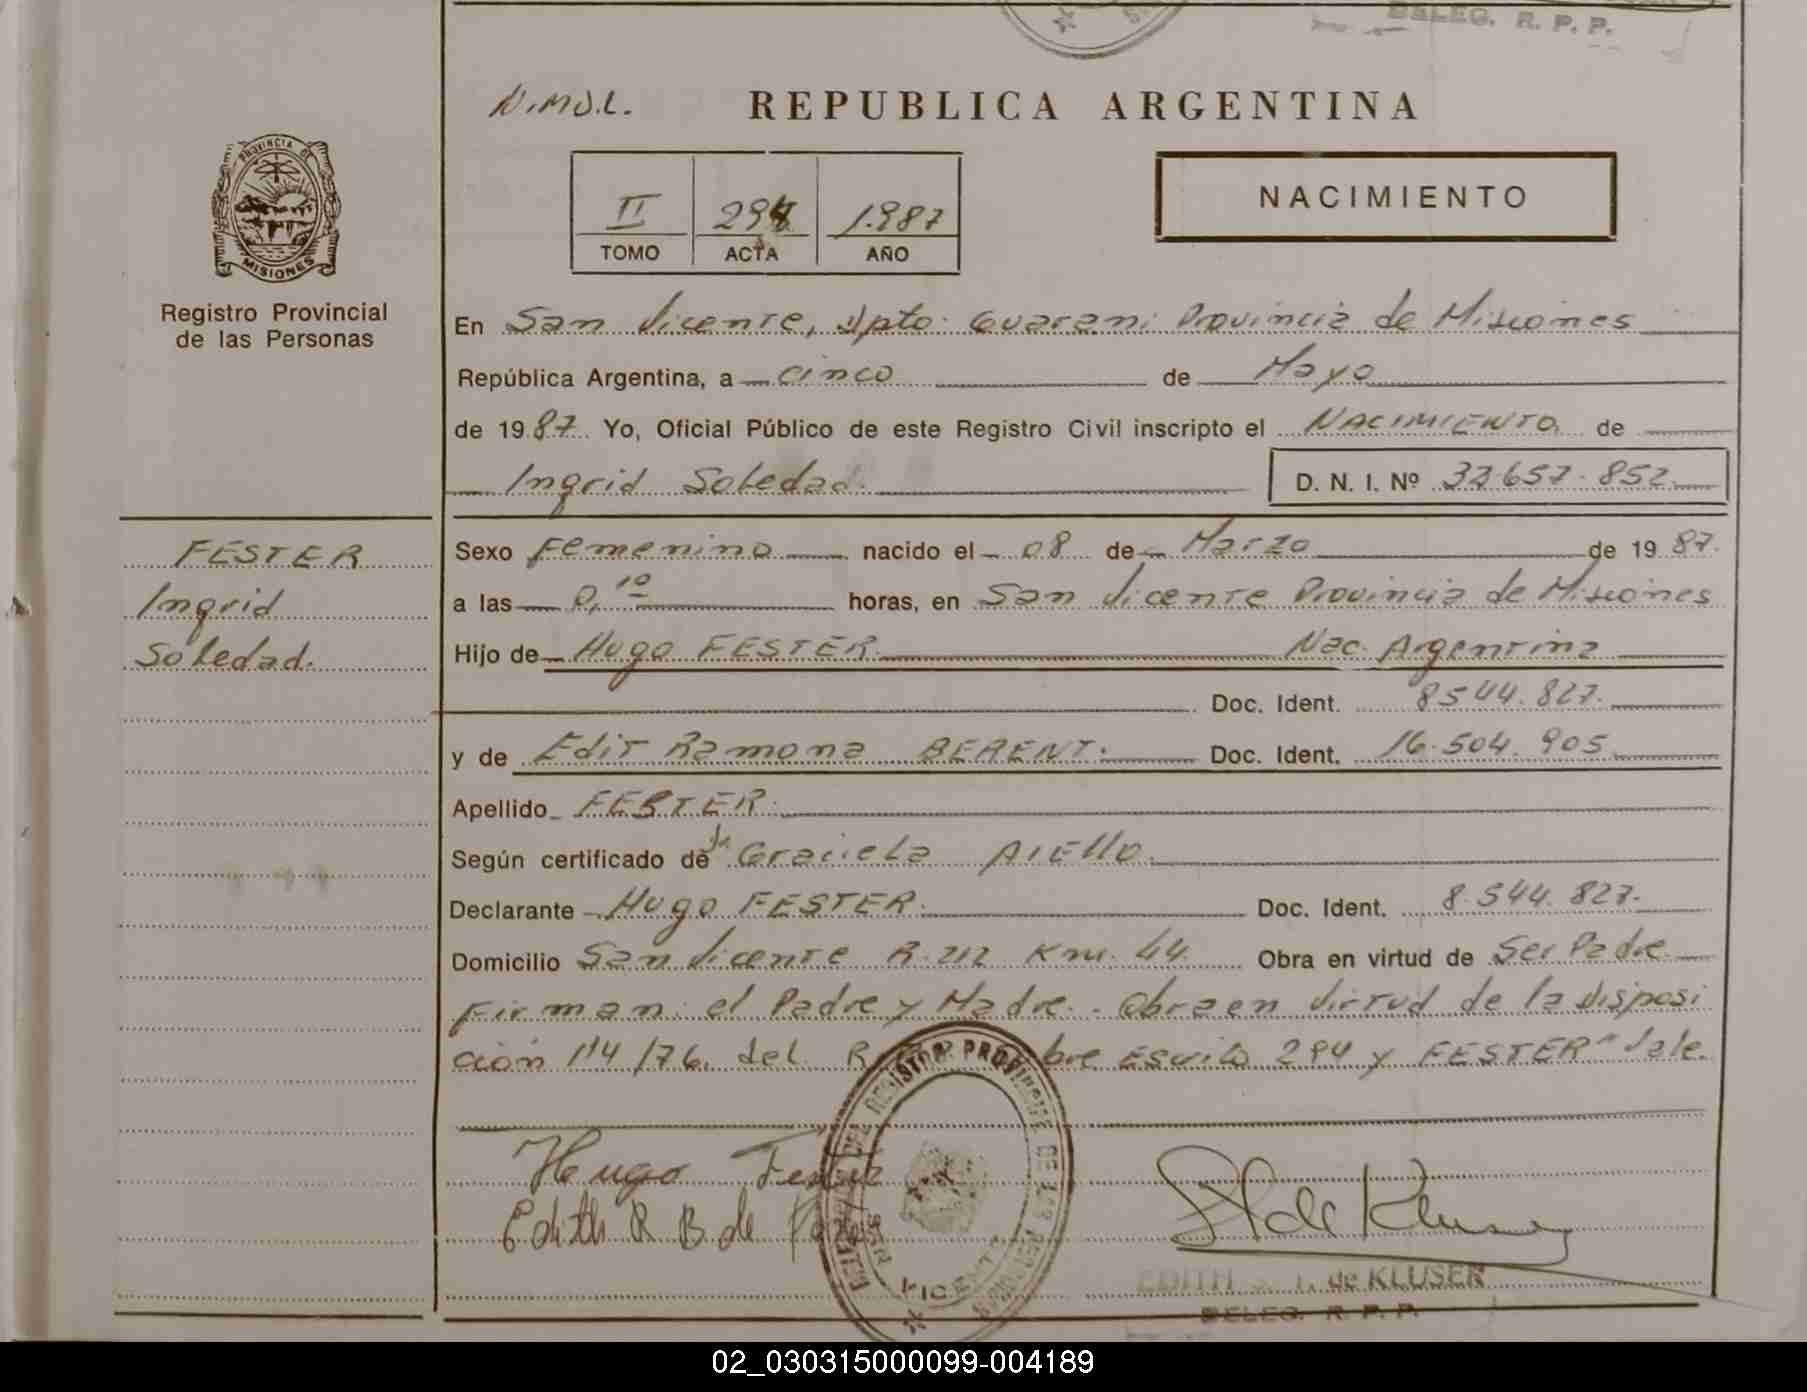 DELEG. R. P. P.
N.M.D.L.
REPUBLICA ARGENTINA
PROVINCIA DE
MISIONES
Registro Provincial
de las Personas
II 294 1.987
TOMO ACTA AÑO
NACIMIENTO
En San Vicente, Dpto. Guarani Provincia de Misiones
República Argentina, a cinco de Mayo
de 1987. Yo, Oficial Público de este Registro Civil inscripto el NACIMIENTO de
Ingrid Soledad. D. N. I. Nº 32.657.852
FESTER
Ingrid
Soledad.
Sexo Femenino nacido el 08 de Marzo de 1987.
a las 0,10 horas, en San Vicente Provincia de Misiones
Hijo de Hugo FESTER. Nac. Argentina
Doc. Ident. 8544.827.
y de Edit Ramona BERENT. Doc. Ident. 16.504.905
Apellido FESTER.
Según certificado de Graciela AIELLO.
Declarante Hugo FESTER. Doc. Ident. 8.544.827.
Domicilio San Vicente R.212 Km. 44 Obra en virtud de Ser Padre
Firman: el Padre y Madre. Obra en virtud de la Disposi
ción 114/76. del R bre Esvilo 294 y FESTER" Vale.
Hugo Fester
Edith R B de
DEL REGISTRO PROVINCIAL DE LAS PERSONAS
SAN VICENTE
de Kluser
EDITH de KLUSER
DELEG. R. P. P.
02_030315000099-004189